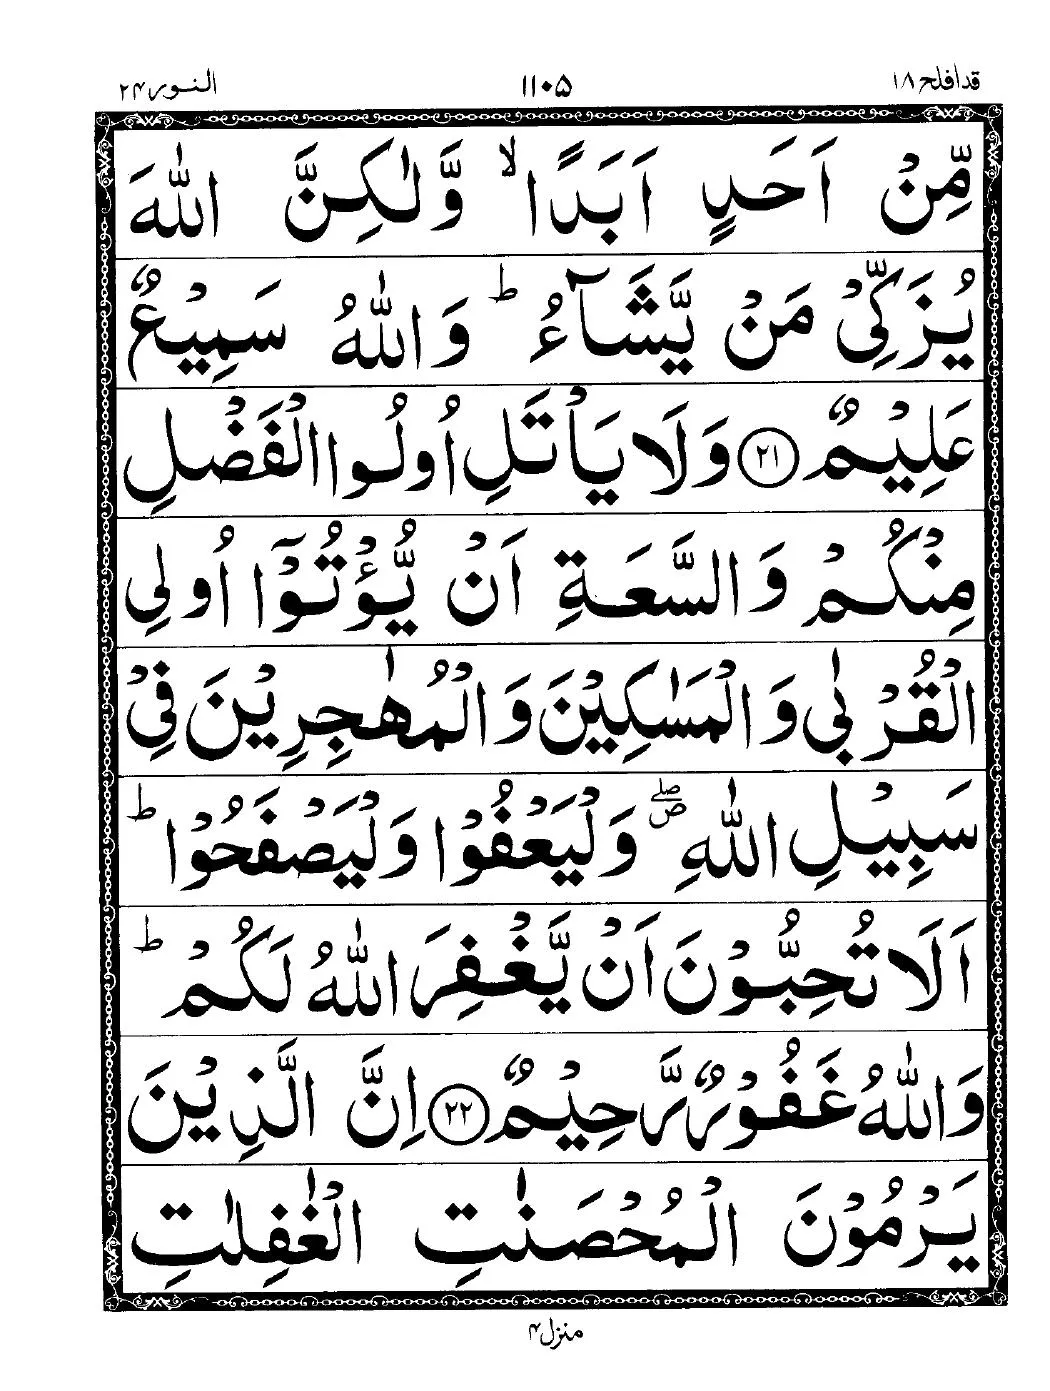 قدافلح ۱۸ ۱۱۰۵ النور ۲۴
مِّنْ اَحَدٍ اَبَدًا ۙ وَّلٰكِنَّ اللّٰهَ
يُزَكِّيْ مَنْ يَّشَآءُ ؕ وَاللّٰهُ سَمِيْعٌ
عَلِيْمٌ ﴿۲۱﴾ وَلَا يَاْتَلِ اُولُوا الْفَضْلِ
مِنْكُمْ وَالسَّعَةِ اَنْ يُّؤْتُوْٓا اُولِي
الْقُرْبٰى وَالْمَسٰكِيْنَ وَالْمُهٰجِرِيْنَ فِيْ
سَبِيْلِ اللّٰهِ ۖ وَلْيَعْفُوْا وَلْيَصْفَحُوْا ؕ
اَلَا تُحِبُّوْنَ اَنْ يَّغْفِرَ اللّٰهُ لَكُمْ ؕ
وَاللّٰهُ غَفُوْرٌ رَّحِيْمٌ ﴿۲۲﴾ اِنَّ الَّذِيْنَ
يَرْمُوْنَ الْمُحْصَنٰتِ الْغٰفِلٰتِ
منزل ۴